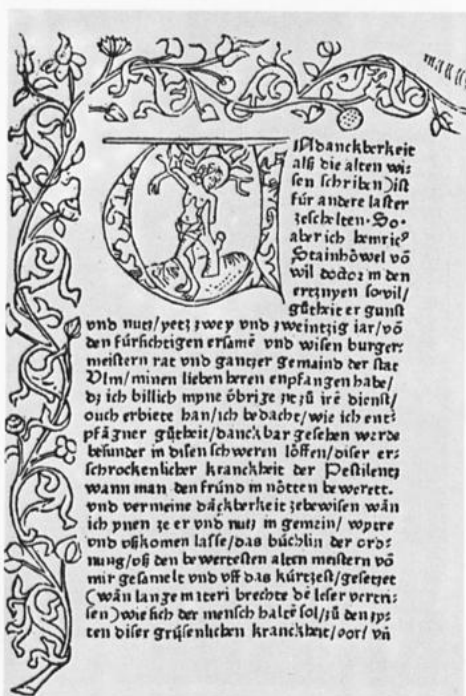 VNdanckberkeit
alß die alten wi⸗
sen schriben)ist
für andere laster
zeschelten·So⸗
aber ich hernricꝰ
Stainhöwel vō
wil doctor in den
ertznyen so vil/
gůtheit er gunst
vnd nutz/yetz zwey vnd zweintzig iar/vō
den fürsichtigen ersamē vnd wisen burger⸗
meistern rat vnd gantzer gemaind der stat
Vlm/minen lieben heren enpfangen habe/
dz ich billich myne übrige zit zů irē dienst/
ouch erbiete han/ich bedacht/wie ich ent⸗
pfāgner gůtheit/danckbar gesehen werde
besunder in disen schweren löffen/diser er⸗
schrockenlicher kranckheit der Pestilentz
wann man den fründ in nötten bewerett.
vnd vermeine dāckberkeit zebewisen wān
ich ynen ze er vnd nutz in gemein/ wytre
vnd vßkomen lasse/das büchlin der ord⸗
nung/vß den bewertesten alten meistern vō
mir gesamelt vnd vff das kürtzest/gesetzet
(wān lange materi brechte dē leser vertri⸗
sen)wie sich der mensch haltē sol/zů den zy⸗
ten diser grüsenlichen kranckheit/oor/ vñ